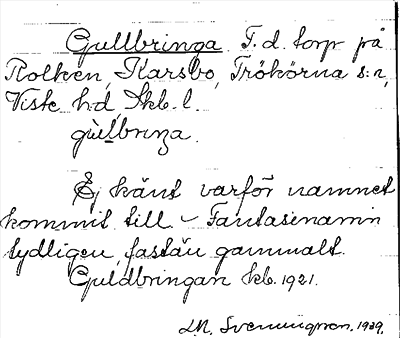 Gullbringa. F.d. torp på
Rolken, Karsbo, Trökörna s:n,
Viste h:d, Skb. l.
gùlbrıŋa.
Ej känt varför namnet
kommit till – Fantasienamn
tydligen, fastän gammalt.
Guldbringan kb. 1921.
M. Svenungsson. 1929.